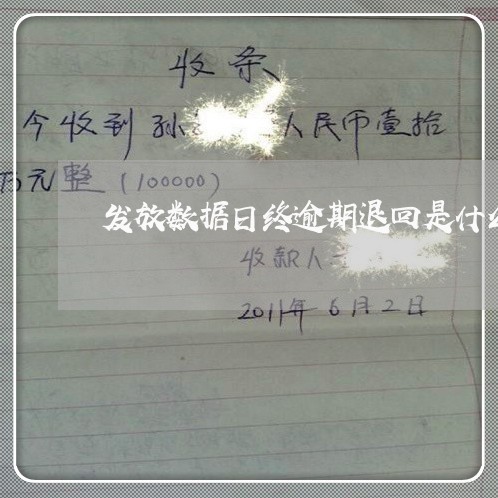 收条
今收到孙 人民币壹拾
万元整(100000)
发放数据日终逾期退回是什么
收款人
2011年6月2日